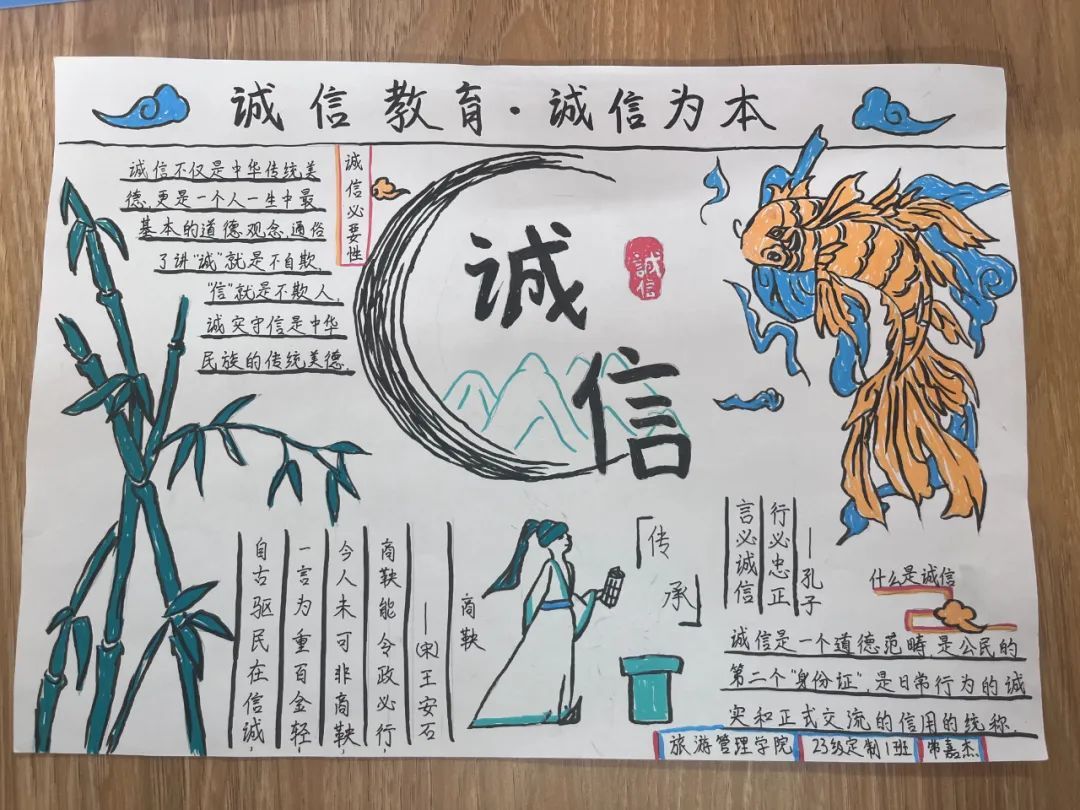 诚信教育·诚信为本
诚信必要性
诚信不仅是中华传统美
德,更是一个人一生中最
基本的道德观念,通俗
了讲"诚"就是不自欺,
"信"就是不欺人,
诚实守信是中华
民族的传统美德.
诚
信
誠信
「传
承」
商鞅
自古驱民在信诚,
一言为重百金轻.
今人未可非商鞅,
商鞅能令政必行
—(宋)王安石
言必诚信
行必忠正
—孔子
什么是诚信
诚信是一个道德范畴,是公民的
第二个"身份证",是日常行为的诚
实和正式交流的信用的统称.
旅游管理学院 23级定制1班 常嘉杰